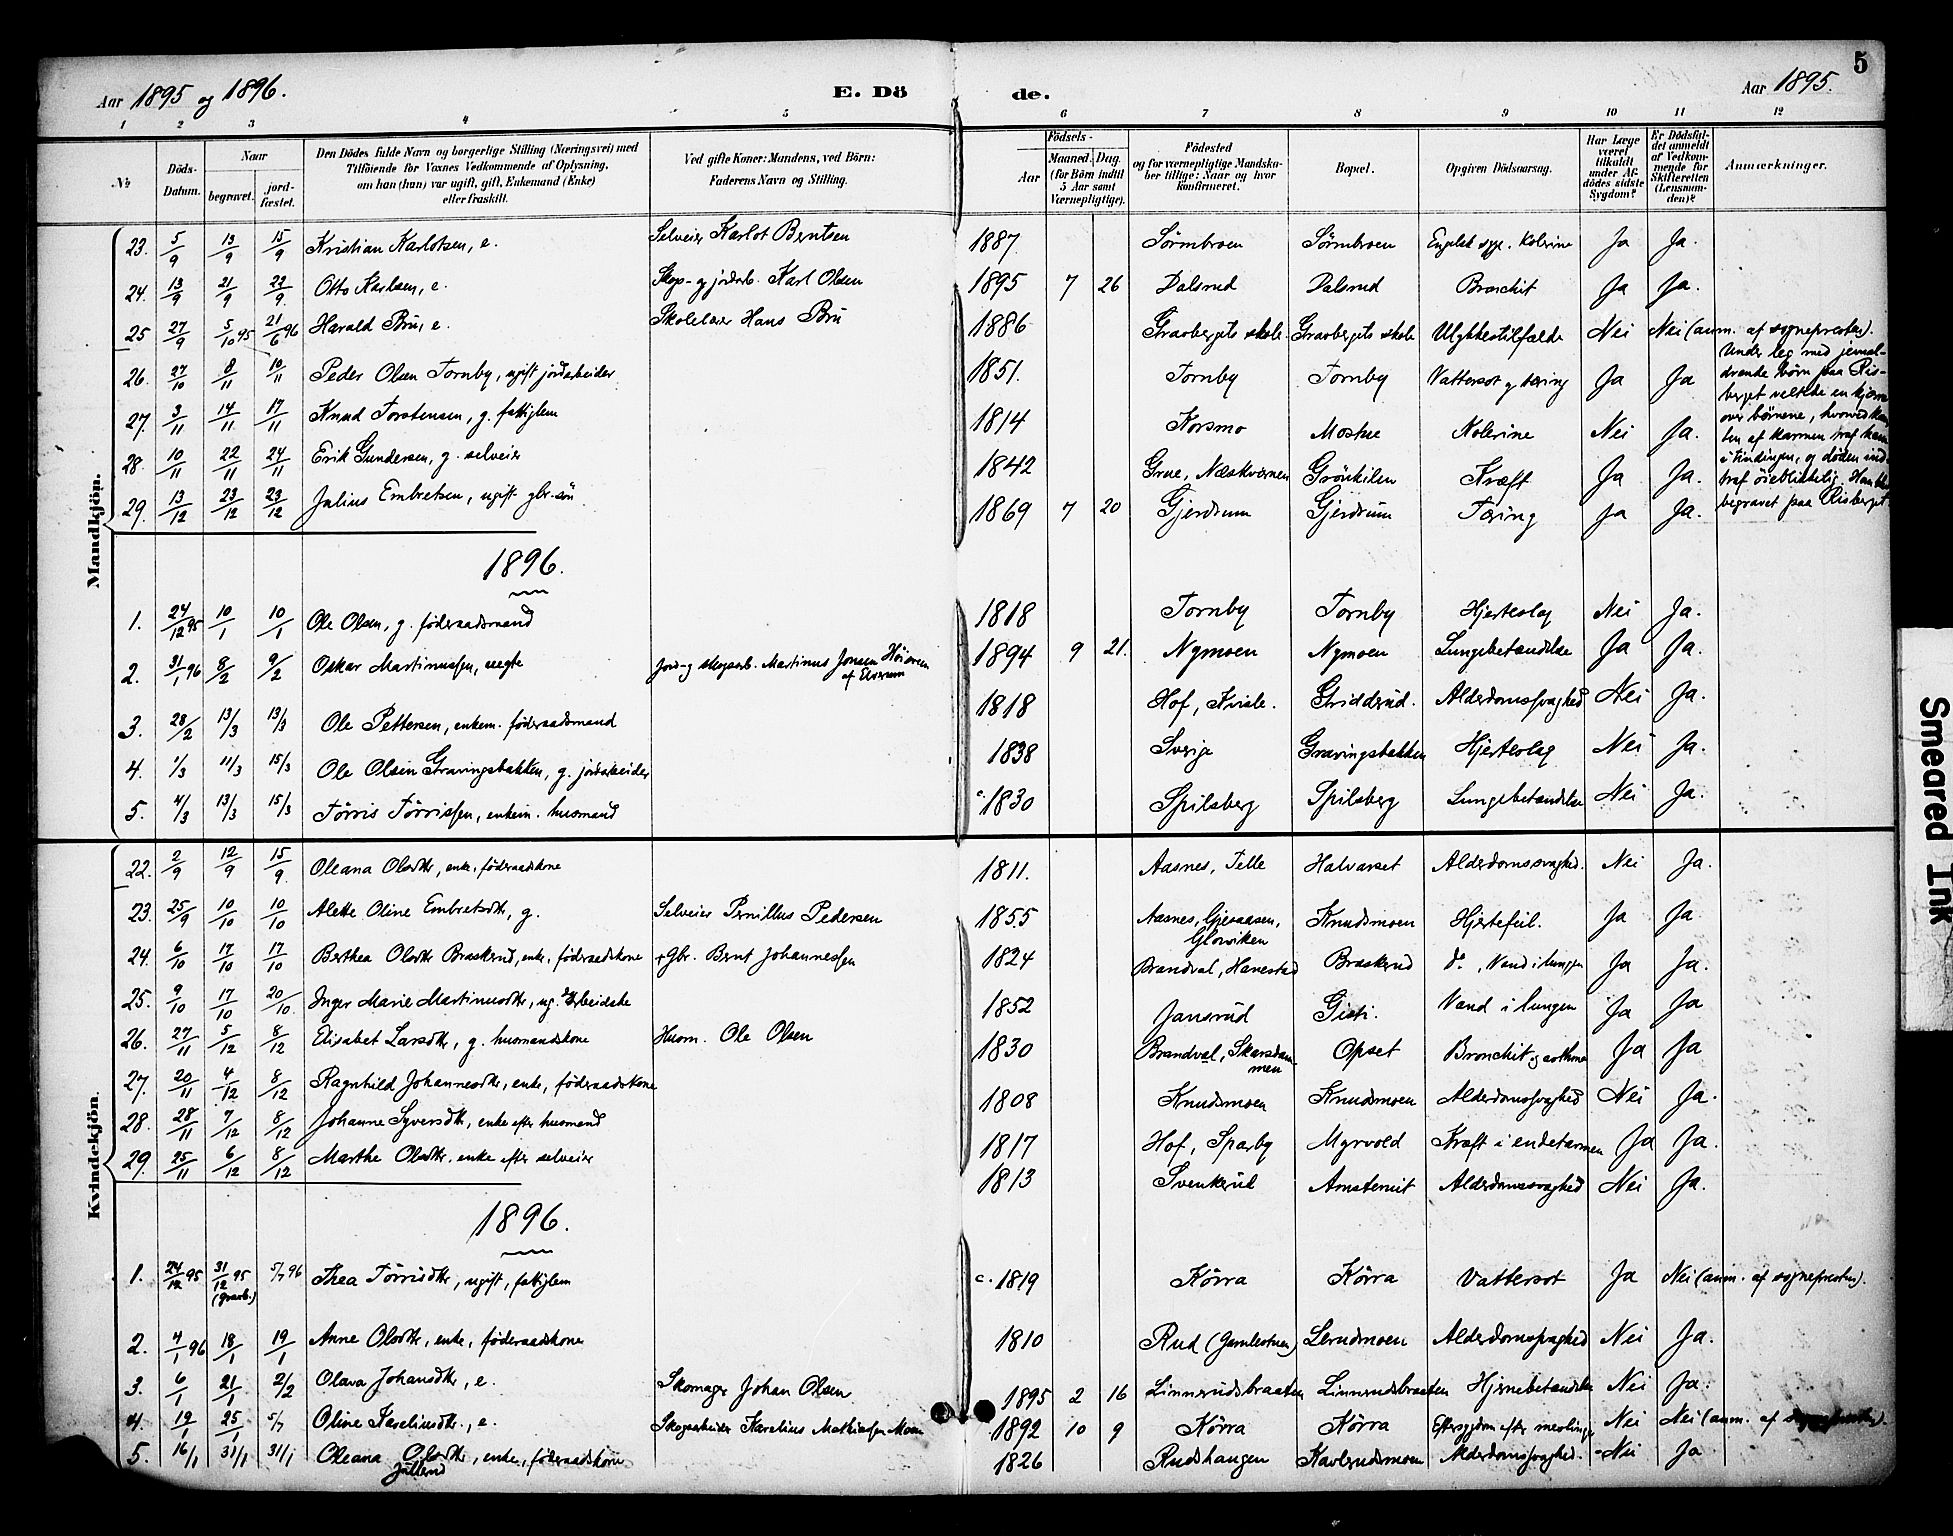 Aar 1895 og 1896. E. Dö de. Aar 1895. 5
1 2 3 4 5 6 7 8 9 10 11 12
No Döds-Datum. Naar begravet. jord-fæstet. Den Dödes fulde Navn og borgerlige Stilling (Næringsvei) med Tilföiende for Voxnes Vedkommende af Oplysning, om han (hun) var ugift, gift, Enkemand (Enke) eller fraskilt. Ved gifte Koner: Mandens, ved Börn: Faderens Navn og Stilling. Födsels- Aar Maaned. Dag. (for Börn indtil 5 Aar samt Værnepligtige). Födested og for værnepligtige Mandska-ber tillige: Naar og hvor konfirmeret. Bopæl. Opgiven Dödsaarsag. Har Læge været tilkaldt under Af-dödes sidste Sygdom? Er Dödsfal-det anmeldt af Vedkom-mende for Skifteretten (Lensman-den)? Anmærkninger.
Mandkjön.
23. 5/9 13/9 15/9 Kristian Karlotsen, e. Selveier Karlot Berntsen 1887. Sörmbroen Sörmbroen Engelsk syge. Kolerine Ja Ja.
24. 13/9 21/9 22/9 Otto Karlsen, e. Skogs- og jordarb. Karl Olsen 1895 7 26 Dalsrud Dalsrud Bronchit Ja Ja.
25 27/9 5/10 95 21/6 96 Harald Bru, e. Skolelærer Hans Bru 1886 Gravbergets skole Gravbergets skole Ulykkestilfælde Nei Nei (anm. af sognepresten).
Under leg med jevnal-
drende börn paa Ris-
berget veltede en kjærre
over börnene, hvorved kan-
ten af karmen traf ham
i tindingen, og döden ind-
traf öieblikkelig. Han blev
begravet paa Risberget.
26. 27/10 8/11 10/11 Peder Olsen Tornby, ugift jordarbeider 1851. Tornby Tornby Vattersot og tæring Ja Ja
27. 3/11 14/11 17/11 Knud Torstensen, g. fattiglem 1814 Korsmo Mostue Kolerine Nei Ja.
28. 10/11 22/11 24/11 Erik Gundersen, g. selveier 1842 Grue, Næskværnen Grönkilen Kræft Ja Ja.
29. 13/12 23/12 23/12 Julius Embretsen, ugift gbr.sön 1869 7 20 Gjerdrum Gjerdrum Tæring Ja Ja.
1896.
1. 24/12 95 10/1 10/1 Ole Olsen, g. föderaadsmand 1818 Tornby Tornby Hjerteslag Nei Ja.
2. 31/1 96 8/2 9/2 Oskar Martinussen, uegte Jord- og skogsarb. Martinus Jonsen af Elverum 1894 9 21. Nymoen Nymoen Lungebetændelse Ja Ja.
3. 28/2 13/3 13/3 Ole Pettersen, enkem. föderaadsmand 1818 Hof, Kvisle. Gridderud. Alderdomssvaghed Nei Ja.
4. 1/3 11/3 15/3 Ole Olsen Gravingsbakken, g. jordarbeider 1838 Sverige Gravingsbakken Hjerteslag Nei Ja.
5. 4/3 13/3 15/3 Törris Törrissen, enkem. husmand c. 1830 Spilsberg Spilsberg Lungebetændelse Nei Ja.
Kvindekjön.
22. 2/9 12/9 15/9. Oleana Olsdtr, enke, föderaadskone 1811. Aasnes, Telle Halvarset Alderdomssvaghed. Nei Ja.
23. 25/9 10/10 10/10 Alette Oline Embretsdtr, g. Selveier Pernillus Pedersen 1855 Aasnes, Gjeraasen, Glorviken Knudsmoen Hjertefeil. Ja Ja
24. 6/10 17/10 17/10 Berthea Olsdtr Braskerud, enke, föderaadskone + Gbr. Bernt Johannessen 1824 Brandval, Hanestad Braskerud do. , Vand i lungen Ja Ja.
25. 9/10 17/10 20/10. Inger Marie Martinusdtr, ug. Arbeidske 1852 Jansrud Gisti. Vand i lungen Ja Ja
26. 27/11 5/12 8/12 Elisabet Larsdtr, g. husmandskone Husm. Ole Olsen 1830 Brandval, Skarsdammen Opset Bronchit og asthma Ja Ja
27. 20/11 4/12 8/12 Ragnhild Johannesdtr, enke, föderaadskone 1808 Knudsmoen Knudsmoen Alderdomssvaghed Nei Ja.
28. 28/11 7/12 8/12 Johanne Syversdtr, enke efter husmand 1817 Hof, Sparby Myrvold Kræft i endetarmen Ja Ja.
29. 25/11 6/12 8/12 Marthe Olsdtr. enke efter selveier 1813 Svenkerud Arnstemit Alderdomssvaghed Nei Ja.
1896.
1. 24/12 95 31/12 95 (Gravb.) 5/7 96 Thea Törrisdtr, ugift, fattiglem c. 1819 Körra Körra Vattersot Ja Nei (anm. af sognepresten).
2. 4/1 96 18/1 19/1 Anne Olsdtr, enke, föderaadskone 1810 Rud (Gamlestuen) Lerudmoen Alderdomssvaghed Nei Ja.
3. 6/1 21/1 2/2 Olava Johansdtr, e. Skomager Johan Olsen 1895 2 16 Linnerudsbraaten Linnerudsbraaten Hjernebetændelse Nei Ja.
4. 19/1 25/1 5/7 Oline Karelinsdtr., e. Skogsarbeider Karelius Mathiassen Moen 1892 10 9 Körra Körra Eftersygdom efter meslinger Nei Nei (anm. af sognepresten).
5. 16/1 31/1 31/1 Oleana Olsdtr, enke, föderaadskone 1826 Rudshaugen Kavlerudsmoen Alderdomssvaghed. Nei Ja
Smeared Ink